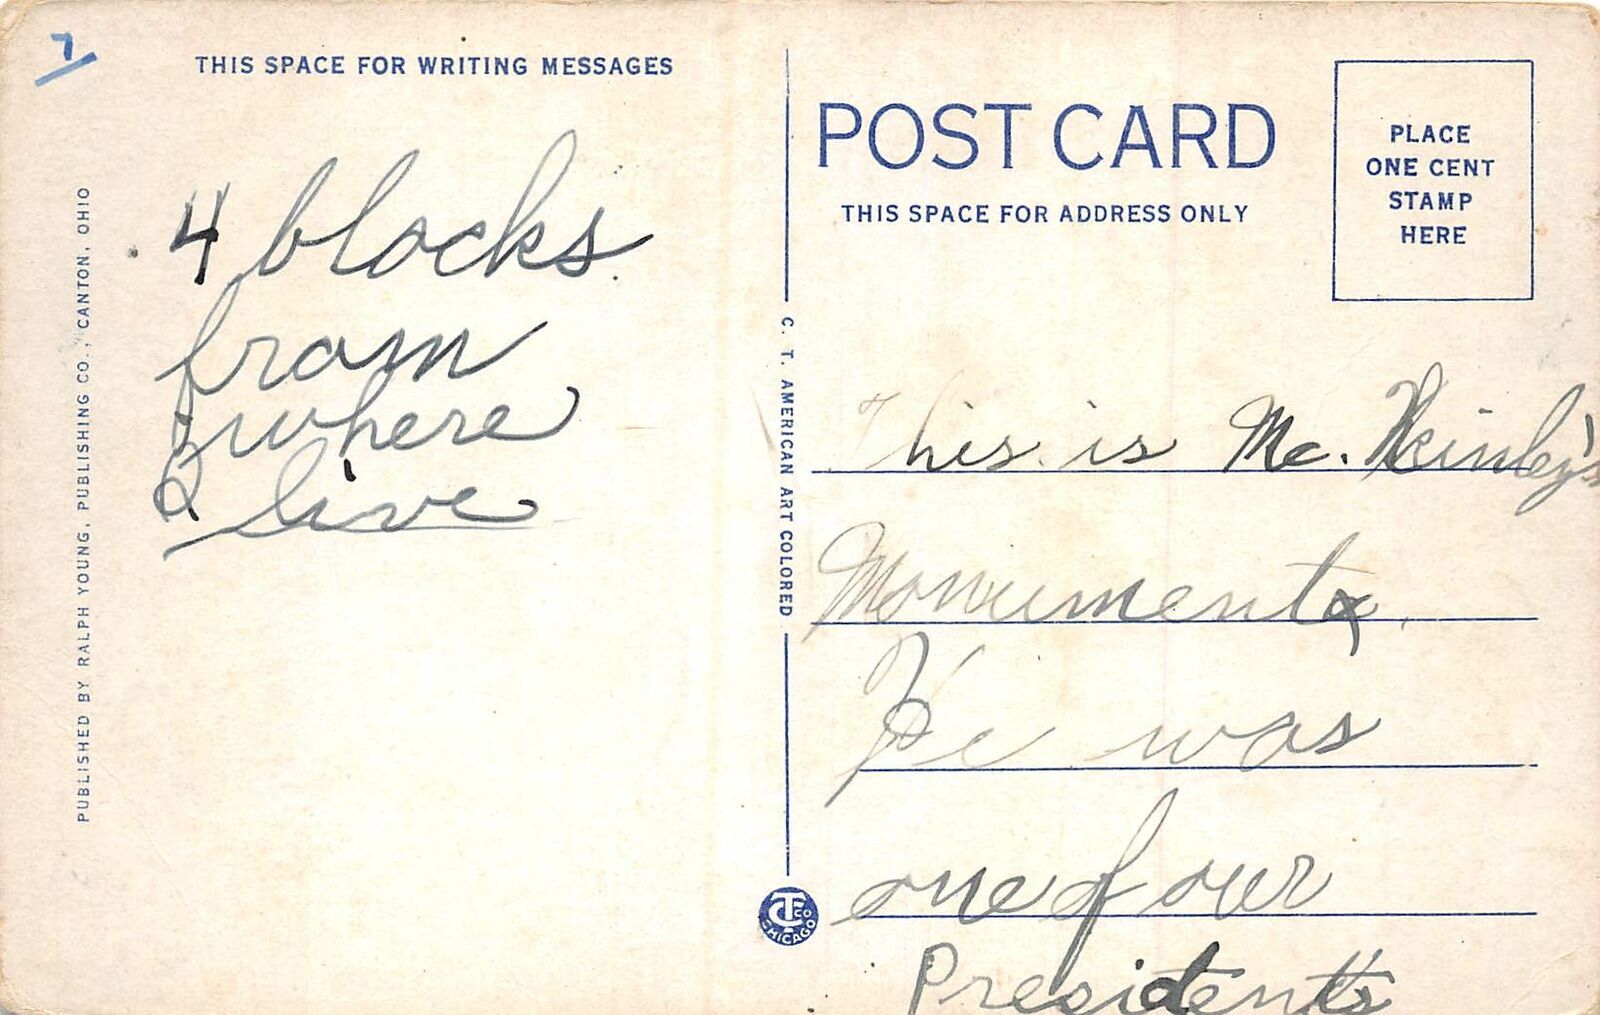 7
THIS SPACE FOR WRITING MESSAGES
4 blocks
from
where
I live
PUBLISHED BY RALPH YOUNG, PUBLISHING CO., CANTON, OHIO
C. T. AMERICAN ART COLORED
CT CO
CHICAGO
POST CARD
THIS SPACE FOR ADDRESS ONLY
PLACE
ONE CENT
STAMP
HERE
This is Mc. Kinley's
Monument.
He was
one of our
Presidents